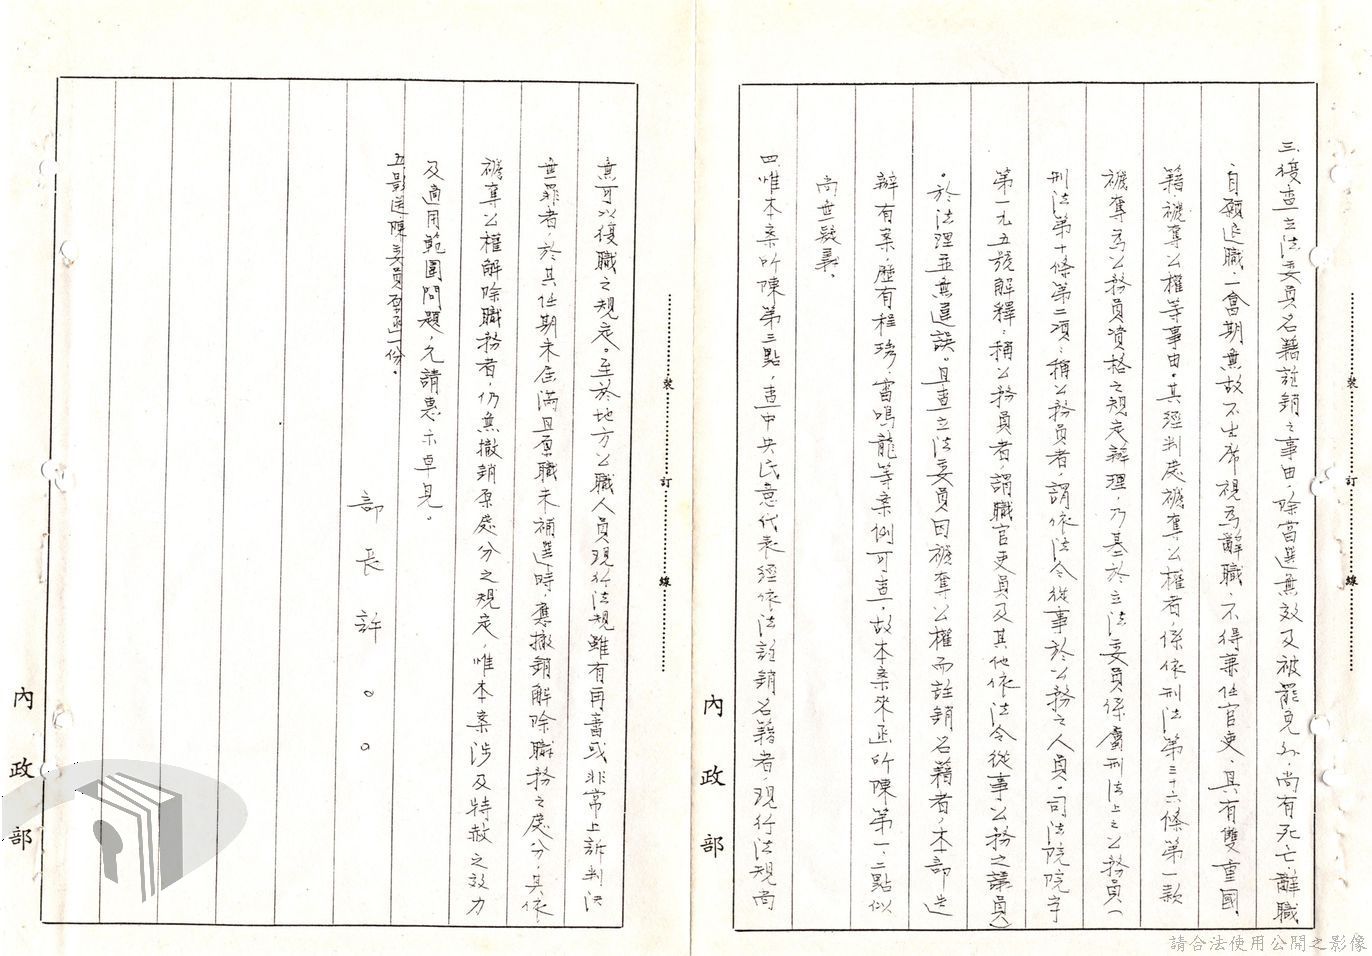 三、復查立法委員名籍註銷之事由，除當選無效及被罷免外，尚有死亡、辭職
、自願退職、一會期無故不出席視為辭職、不得兼任官吏、具有雙重國
籍、褫奪公權等事由。其經判處褫奪公權者，係依刑法第三十六條第一款
褫奪為公務員資格之規定辦理，乃基於立法委員係屬刑法上之公務員（
刑法第十條第二項：稱公務員者，謂依法令從事於公務之人員。司法院院字
第一九五號解釋：稱公務員者，謂職官吏員及其他依法令從事公務之議員）
。於法理並無違誤。且查立法委員因褫奪公權而註銷名籍者，本部迭
辦有案，歷有程琇、雷鳴龍等案例可查，故本案來函所陳第一、二點似
尚無疑義。
四、惟本案所陳第三點，查中央民意代表經依法註銷名籍者，現行法規尚
無可以復職之規定。至於地方公職人員現行法規雖有再審或非常上訴判決
無罪者，於其任期未屆滿且原職未補選時，應撤銷解除職務之處分，其依
褫奪公權解除職務者，仍無撤銷原處分之規定，惟本案涉及特赦之效力
及適用範圍問題，允請惠示卓見。
五、影送陳委員存函一份。
部長許○○
裝
訂
線
內政部
裝
訂
線
內政部
請合法使用公開之影像